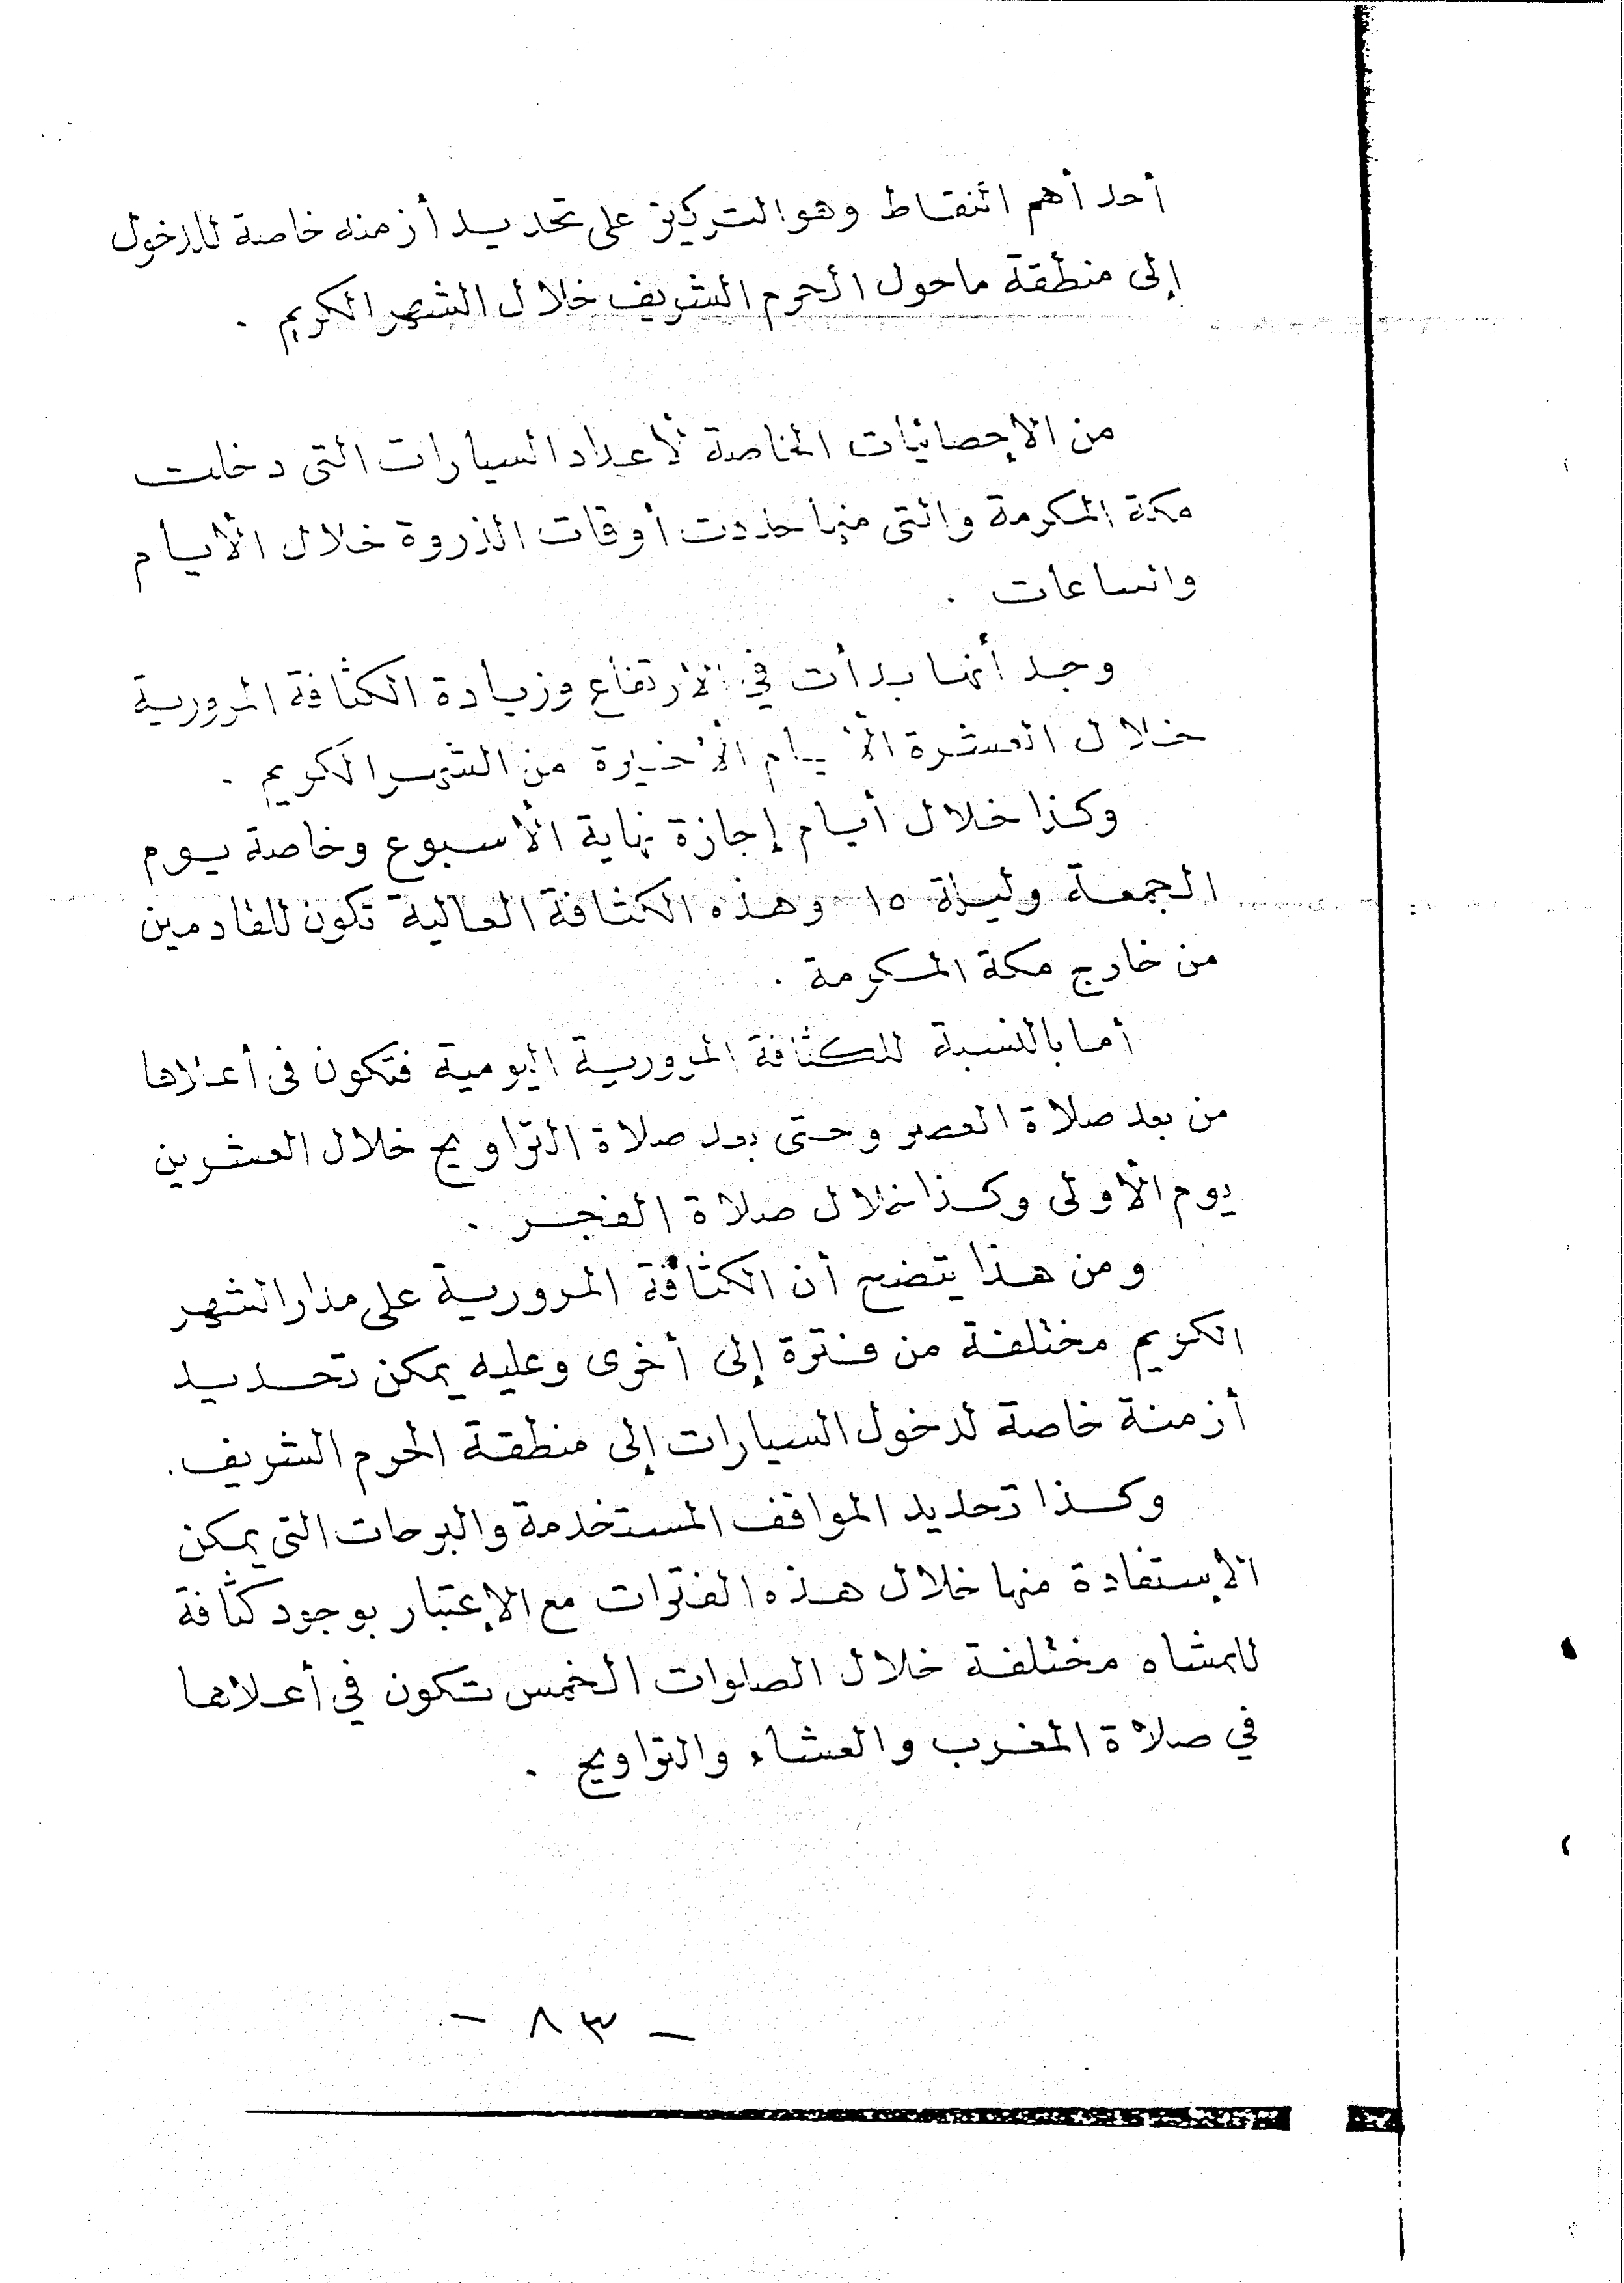 أحد أهم النقاط وهو التركيز على تحديد أزمنه خاصة للدخول
إلى منطقة ماحول الحرم الشريف خلال الشهر الكريم .
من الإحصائيات الخاصة لأعداد السيارات التى دخلت
مكة المكرمة والتى منها حددت أوقات الذروة خلال الأيام
والساعات .
وجد أنها بدأت في الارتفاع وزيادة الكثافة المرورية
خلال العشرة الأيام الأخيرة من الشهر الكريم .
وكذا خلال أيام إجازة نهاية الأسبوع وخاصة يوم
الجمعة وليلة ١٥ وهذه الكثافة العالية تكون للقادمين
من خارج مكة المكرمة .
أما بالنسبة للكثافة المرورية اليومية فتكون فى أعلاها
من بعد صلاة العصر وحتى بعد صلاة التراويح خلال العشرين
يوم الأولى وكذا خلال صلاة الفجر .
ومن هذا يتضح أن الكثافة المرورية على مدار الشهر
الكريم مختلفة من فترة إلى أخرى وعليه يمكن تحديد
أزمنة خاصة لدخول السيارات إلى منطقة الحرم الشريف.
وكذا تحديد المواقف المستخدمة والبرحات التى يمكن
الإستفادة منها خلال هذه الفترات مع الإعتبار بوجود كثافة
للمشاه مختلفة خلال الصلوات الخمس تكون في أعلاها
في صلاة المغرب والعشاء والتراويح .
- ٨٣ -